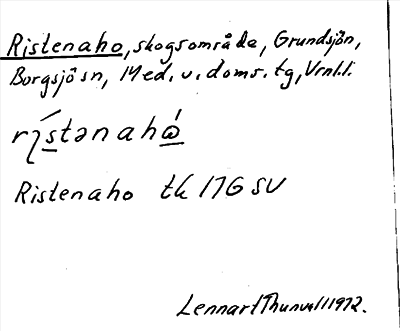 Ristenaho, skogsområde, Grundsjön,
Borgsjö sn, Med. v. doms. tg, Vrnl.l.
rı́stənahὼ
Ristenaho tk 17G SV
Lennart Thunvall 1972.